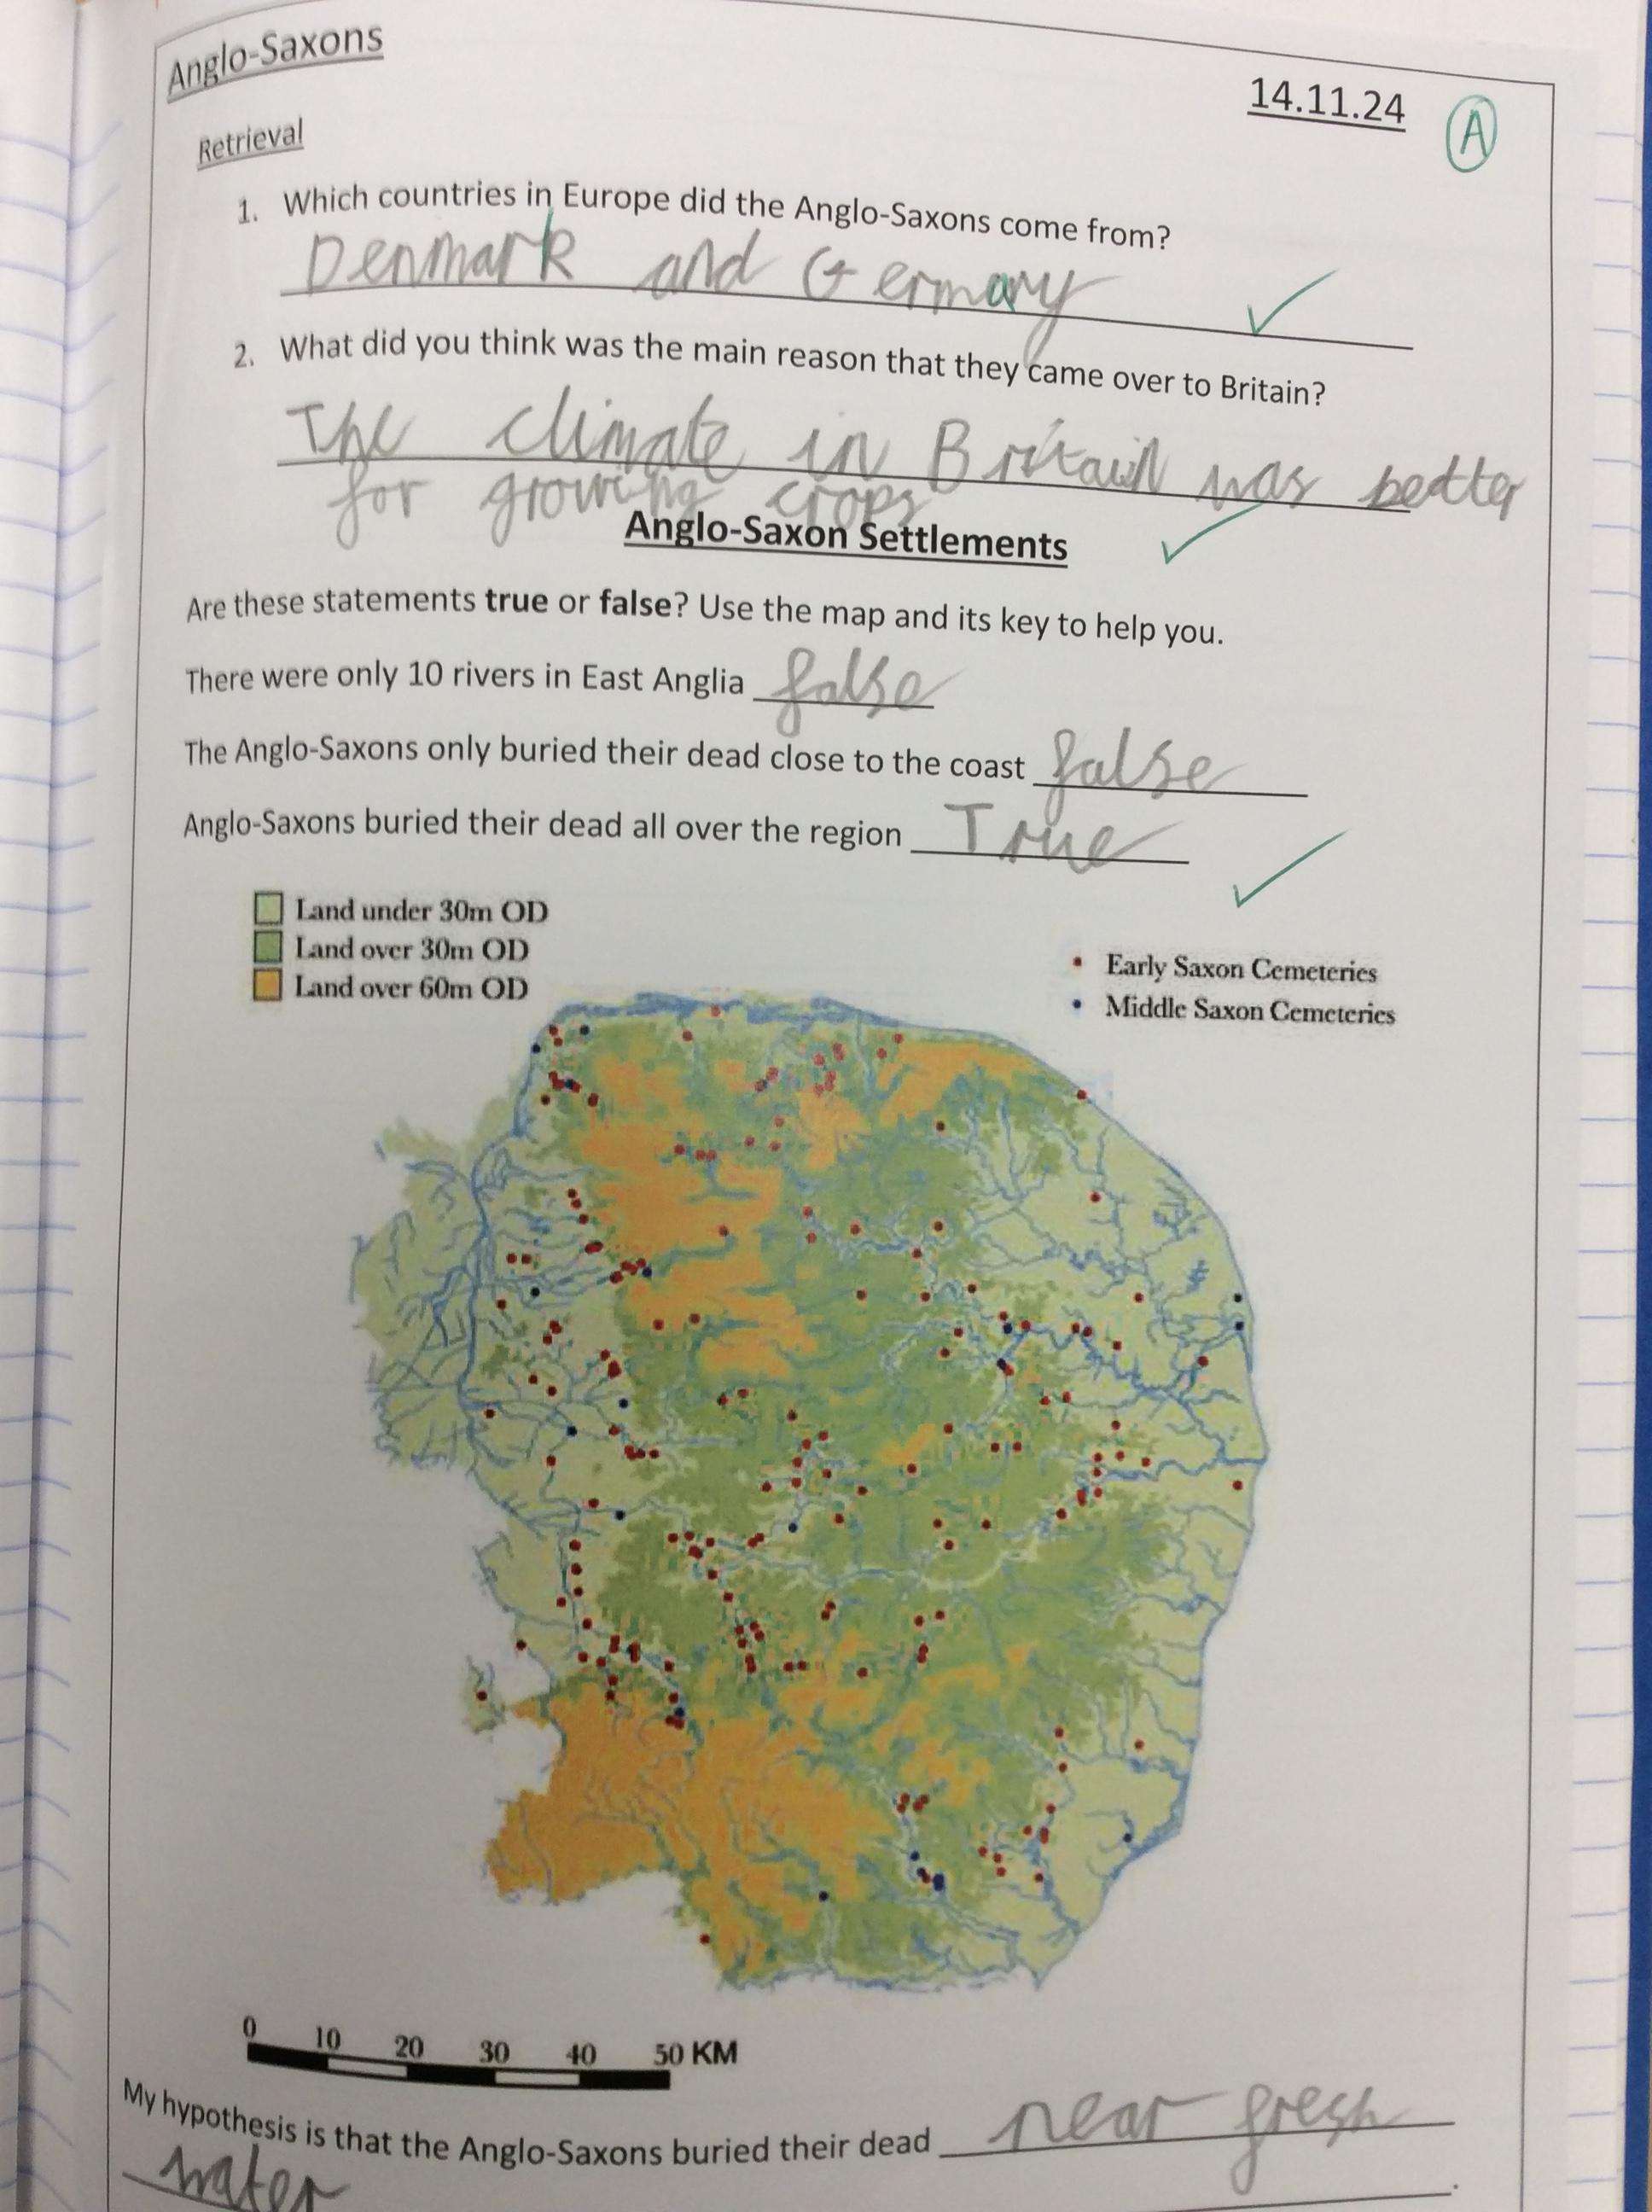 Anglo-Saxons
14.11.24
A
Retrieval
1. Which countries in Europe did the Anglo-Saxons come from?
Denmark and Germany
2. What did you think was the main reason that they came over to Britain?
The climate in Britain was bedtter
for growing crops
Anglo-Saxon Settlements
Are these statements true or false? Use the map and its key to help you.
There were only 10 rivers in East Anglia false
The Anglo-Saxons only buried their dead close to the coast false
Anglo-Saxons buried their dead all over the region True
Land under 30m OD
Land over 30m OD
Land over 60m OD
Early Saxon Cemeteries
Middle Saxon Cemeteries
0 10 20 30 40 50 KM
My hypothesis is that the Anglo-Saxons buried their dead near fresh
water .